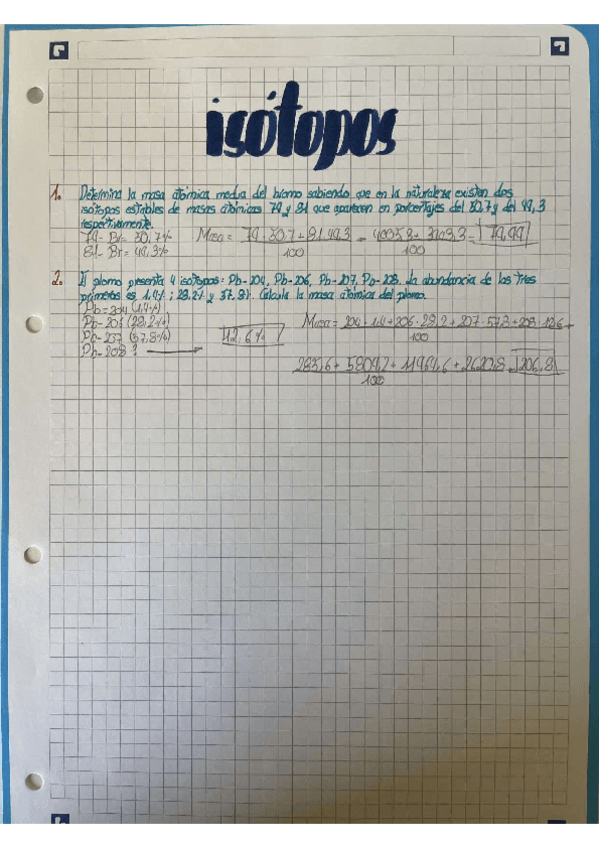 isótopos
1. Determina la masa atómica media del bromo sabiendo que en la naturaleza existen dos
isótopos estables de masas atómicas 79 y 81 que aparecen en porcentajes del 50,7 y del 49,3
respectivamente.
79-Br= 50,7% Masa = 79·50.7+81·49,3 = 4005,3+3993,3 = 79,99
81-Br= 49,3% 100 100
2. El plomo presenta 4 isótopos: Pb-204, Pb-206, Pb-207, Pb-208. La abundancia de los tres
primeros es 1.4%; 28,2% y 57.8%. Calcula la masa atómica del plomo.
Pb-204 (1,4%)
Pb-206 (28,2%) Masa = 204·1.4+206·28,2+207·57,8+208·12,6
Pb-207 (57,8%) 12,6% 100
Pb-208?
285,6+5809,2+11964,6+2620,8 = 206,8
100